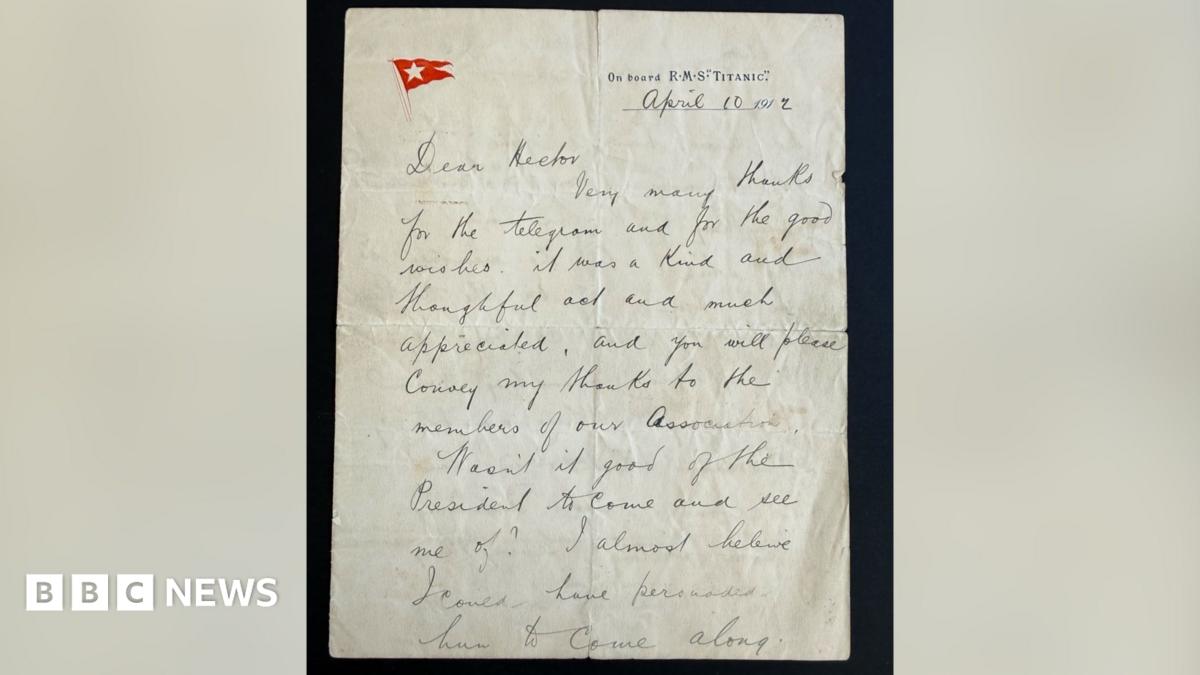 On board R·M·S "TITANIC".
April 10 1912
Dear Hector
Very many thanks
for the telegram and for the good
wishes. it was a kind and
thoughtful act and much
appreciated, and you will please
Convey my thanks to the
members of our Association.
Wasn't it good of the
President to come and see
me of? I almost beleive
I could have persuaded
him to come along.
BBC NEWS